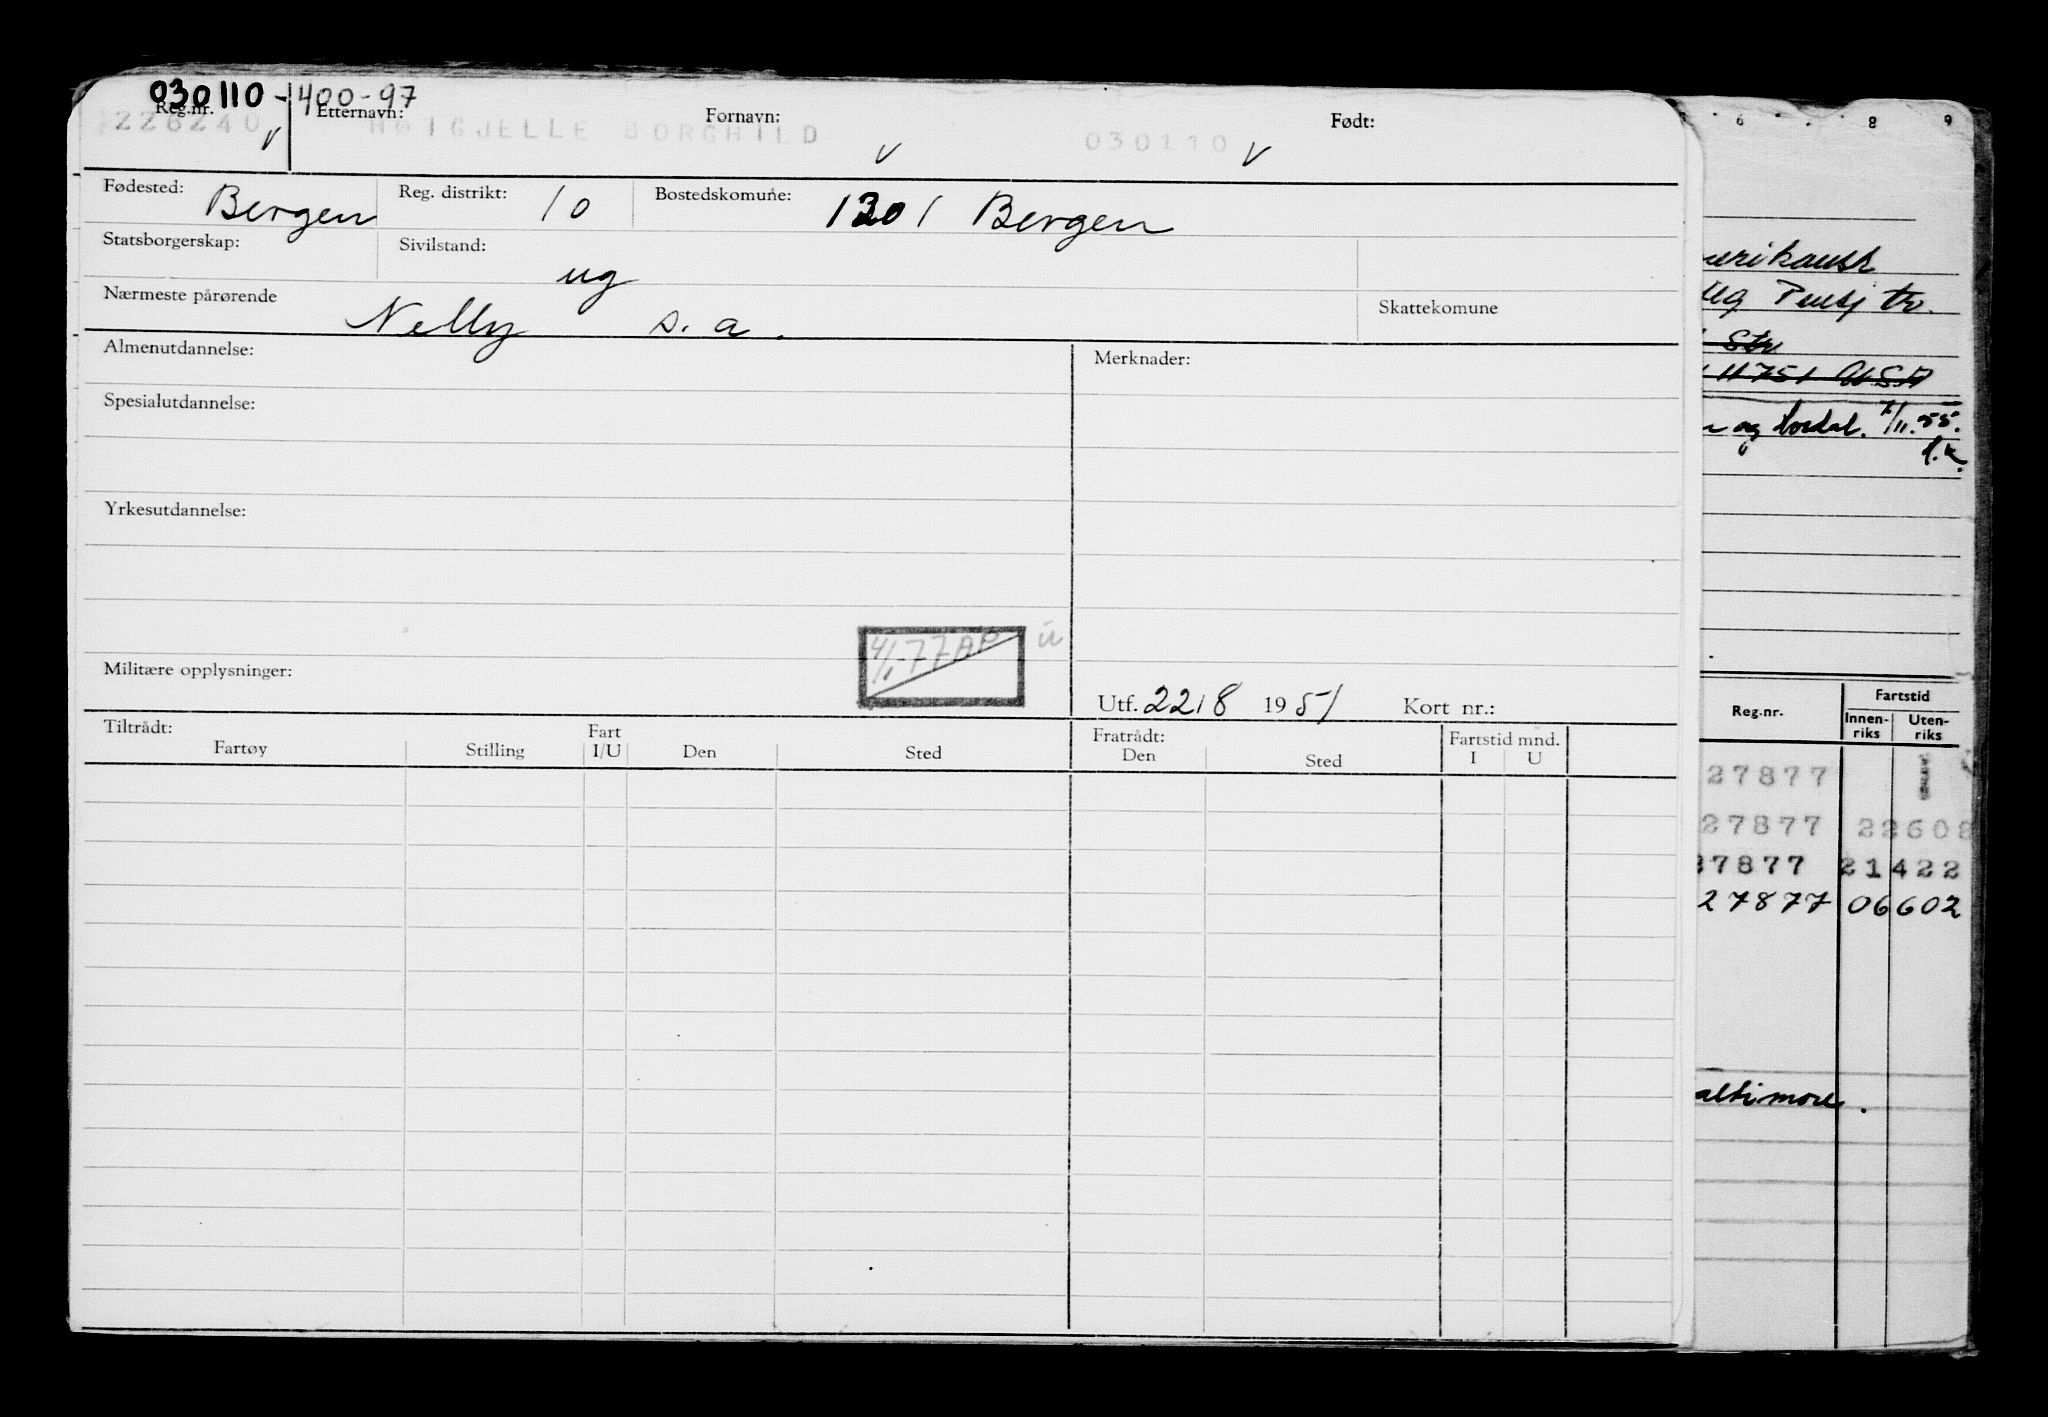 030110-400-97
Reg.nr. Etternavn: Fornavn: Født:
226240 HØIGJELLE BORGHILD 030110
Fødested: Bergen Reg. distrikt: 10 Bostedskomune: 1301 Bergen
Statsborgerskap: Sivilstand: ug
Nærmeste pårørende Nelly s. a. Skattekomune
Almenutdannelse: Merknader:
Spesialutdannelse:
Yrkesutdannelse:
4/1-77 AP
Militære opplysninger:
Utf. 22/8 1951 Kort nr.:
Tiltrådt: Fart Fratrådt: Fartstid mnd.
Fartøy Stilling I/U Den Sted Den Sted I U
6 8 9
Str
11751 USA
og Hordal. 7/11.55.
Reg.nr. Fartstid
Innenriks Utenriks
27877
27877 22608
37877 21422
27877 06602
altimore.